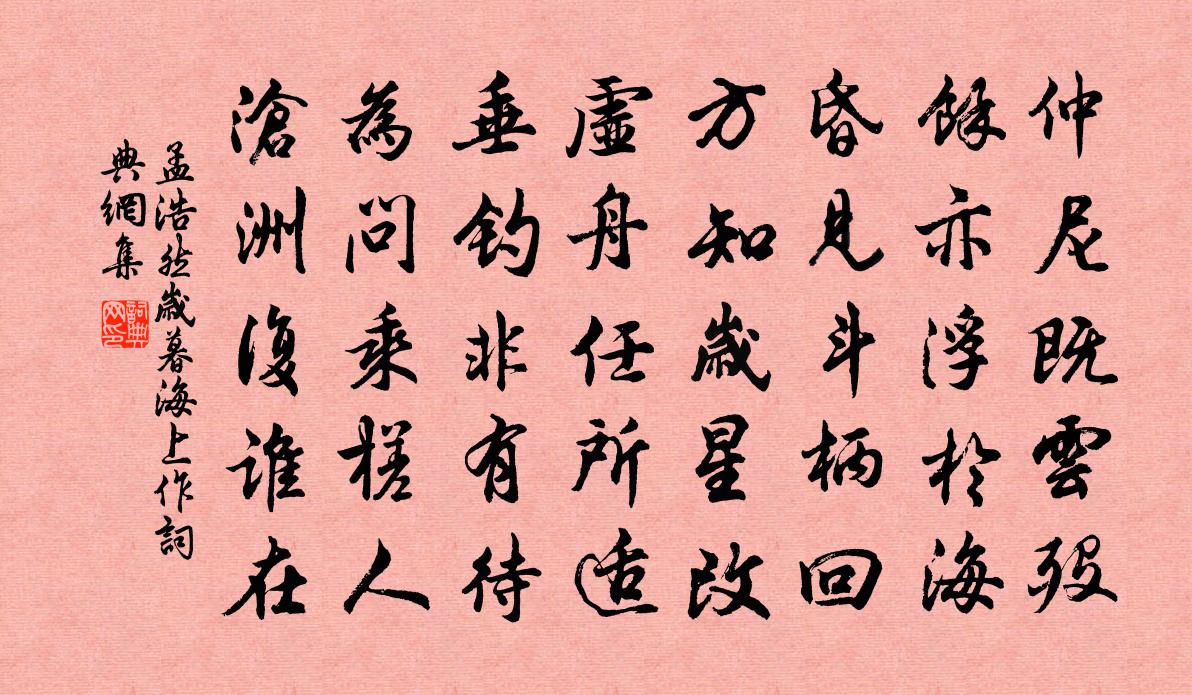 仲尼既雲歿
餘亦浮於海
昏見斗柄回
方知歲星改
虛舟任所适
垂釣非有待
為問乘槎人
滄洲復誰在
孟浩然歲暮海上作詞
典網集
詞典
网印